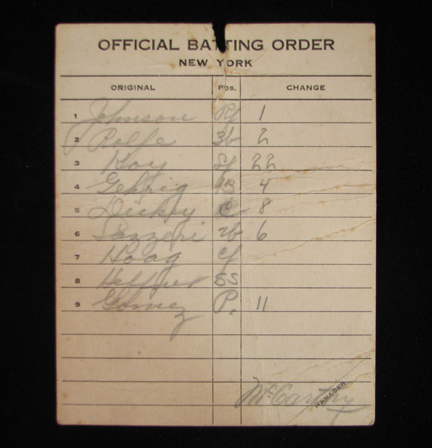 OFFICIAL BATTING ORDER
NEW YORK
ORIGINAL POS. CHANGE
1 Johnson Rf 1
2 Rolfe 3b 2
3 Hoy 22
4 Gehrig 1B 4
5 Dickey C 8
6 Lazzeri 2b 6
7 Hoag cf
8 Heffner SS
9 Gomez P. 11
McCarthy
MANAGER